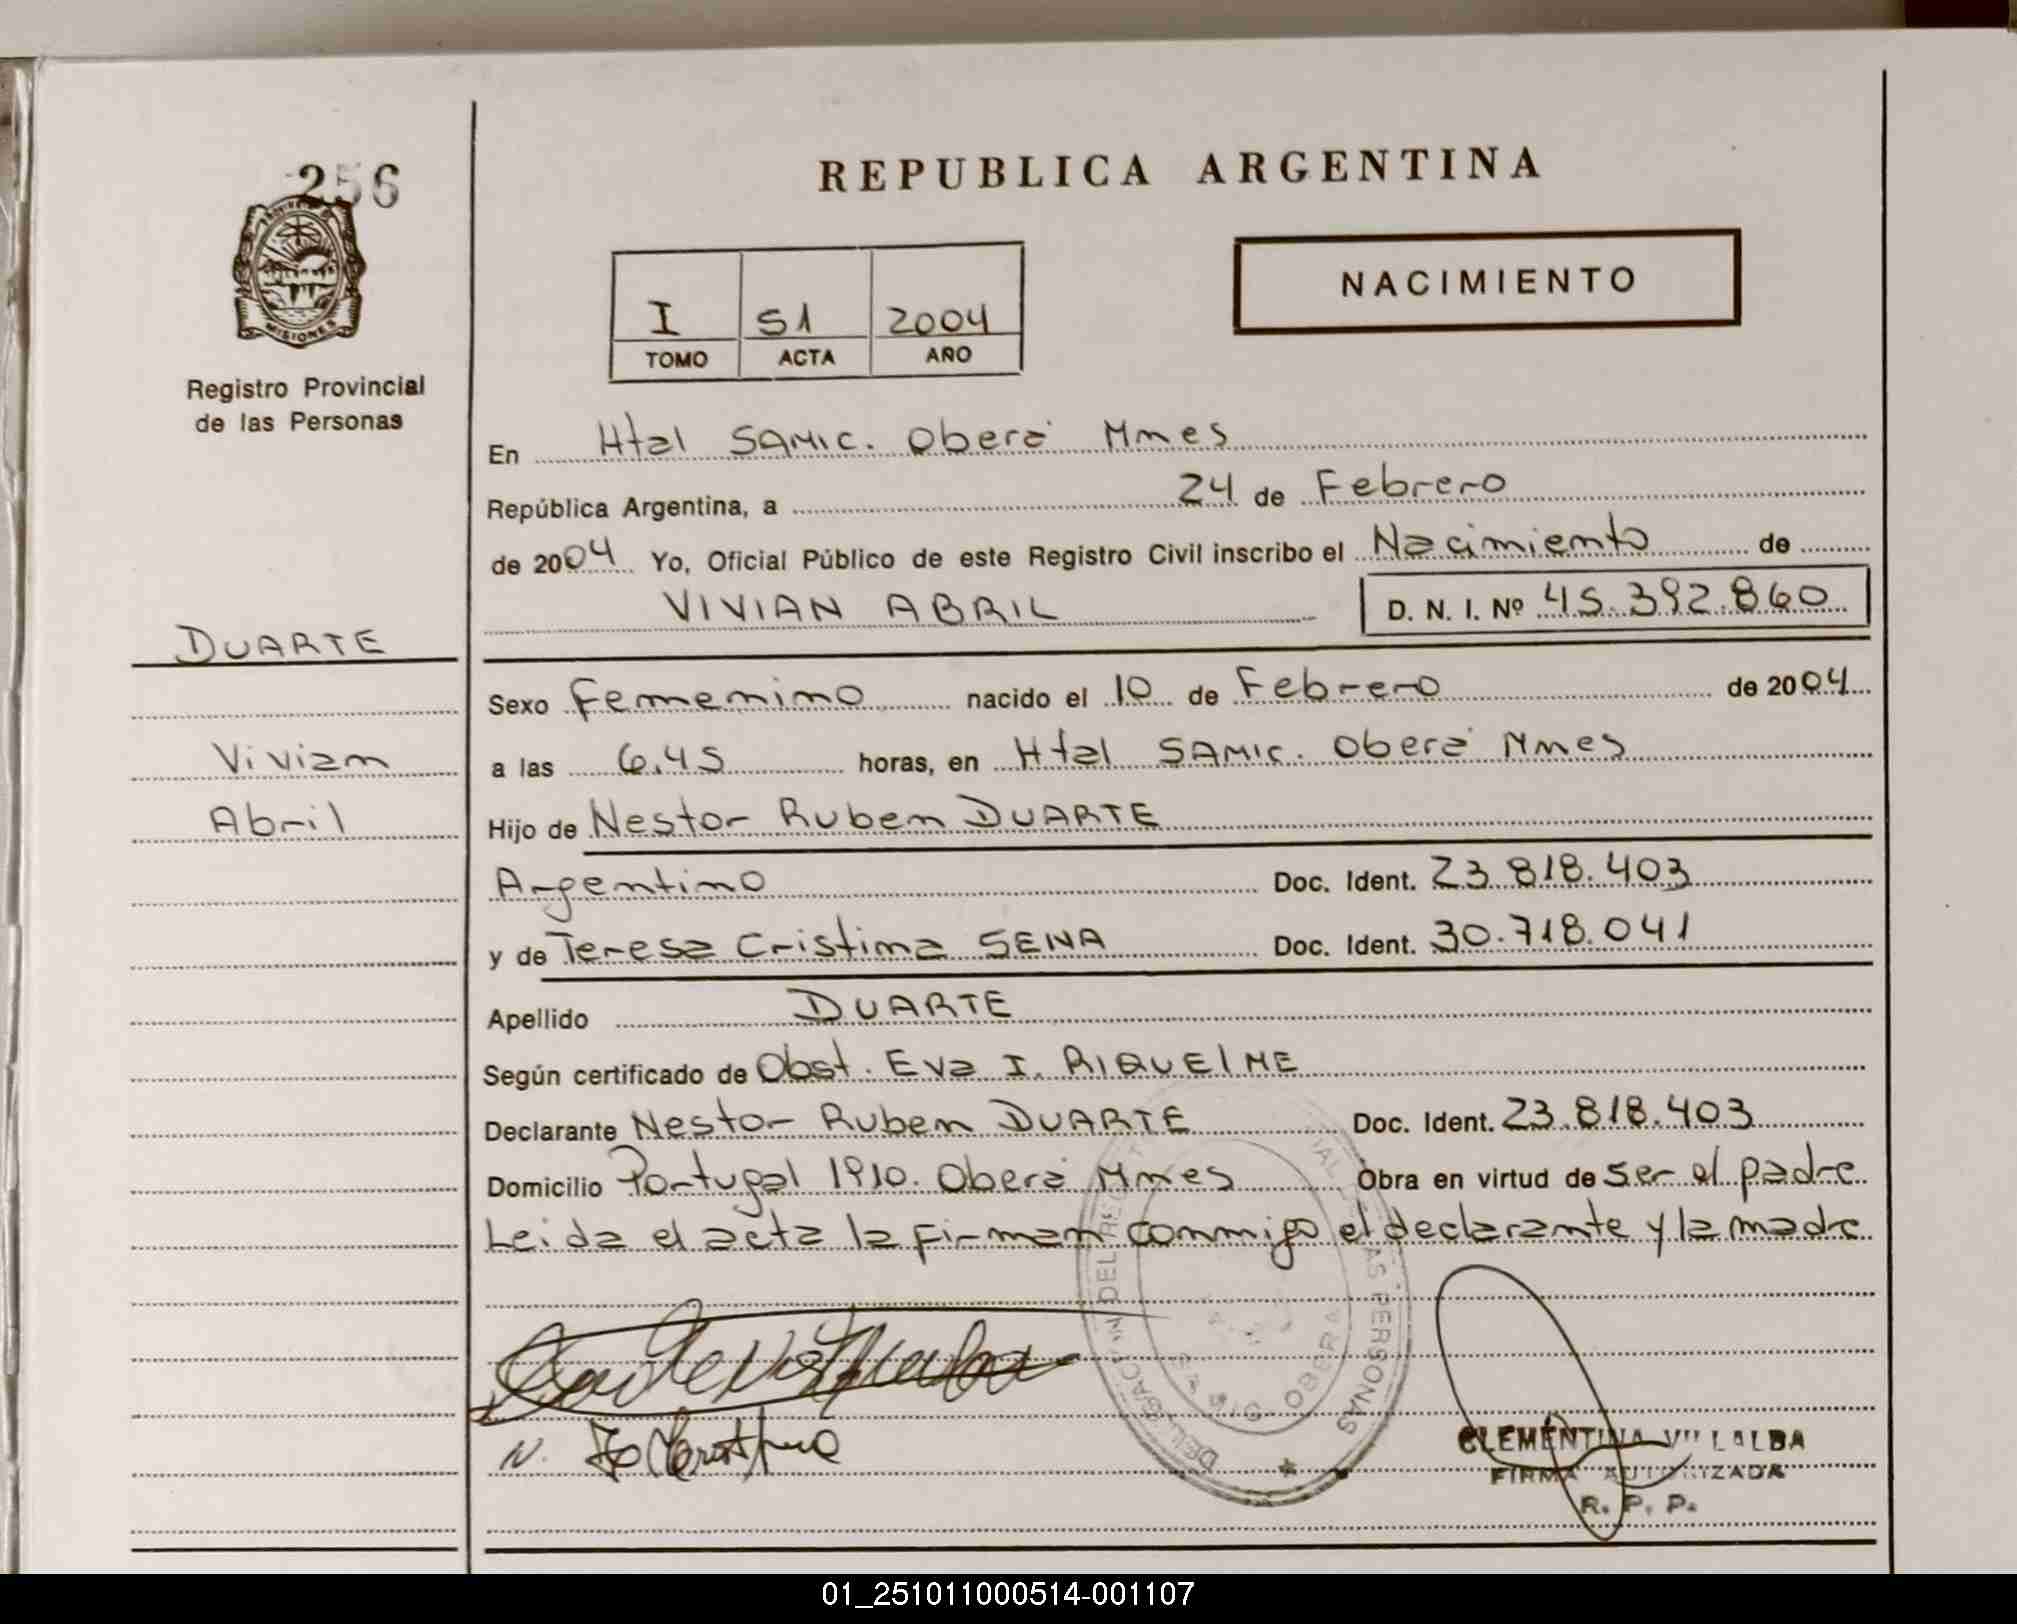 256
REPUBLICA ARGENTINA
MISIONES
Registro Provincial
de las Personas
I 51 2004
TOMO ACTA AÑO
NACIMIENTO
En Htal SAMIC. Oberá Mnes
República Argentina, a 24 de Febrero
de 2004 Yo, Oficial Público de este Registro Civil inscribo el Nacimiento de
VIVIAN ABRIL D. N. I. Nº 45.392.860
DUARTE
Vivian
Abril
Sexo Femenino nacido el 10 de Febrero de 2004
a las 6,45 horas, en Htal SAMIC. Oberá Mnes
Hijo de Nestor Ruben DUARTE
Argentino Doc. Ident. 23.818.403
y de Teresa Cristina SENA Doc. Ident. 30.718.041
Apellido DUARTE
Según certificado de Obst. Eva I. RIQUELME
Declarante Nestor Ruben DUARTE Doc. Ident. 23.818.403
Domicilio Portugal 1910. Oberá Mnes Obra en virtud de ser el padre
Leida el acta la firman conmigo el declarante y la madre
CLEMENTINA VILLALBA
FIRMA AUTORIZADA
R. P. P.
OBERA
01_251011000514-001107